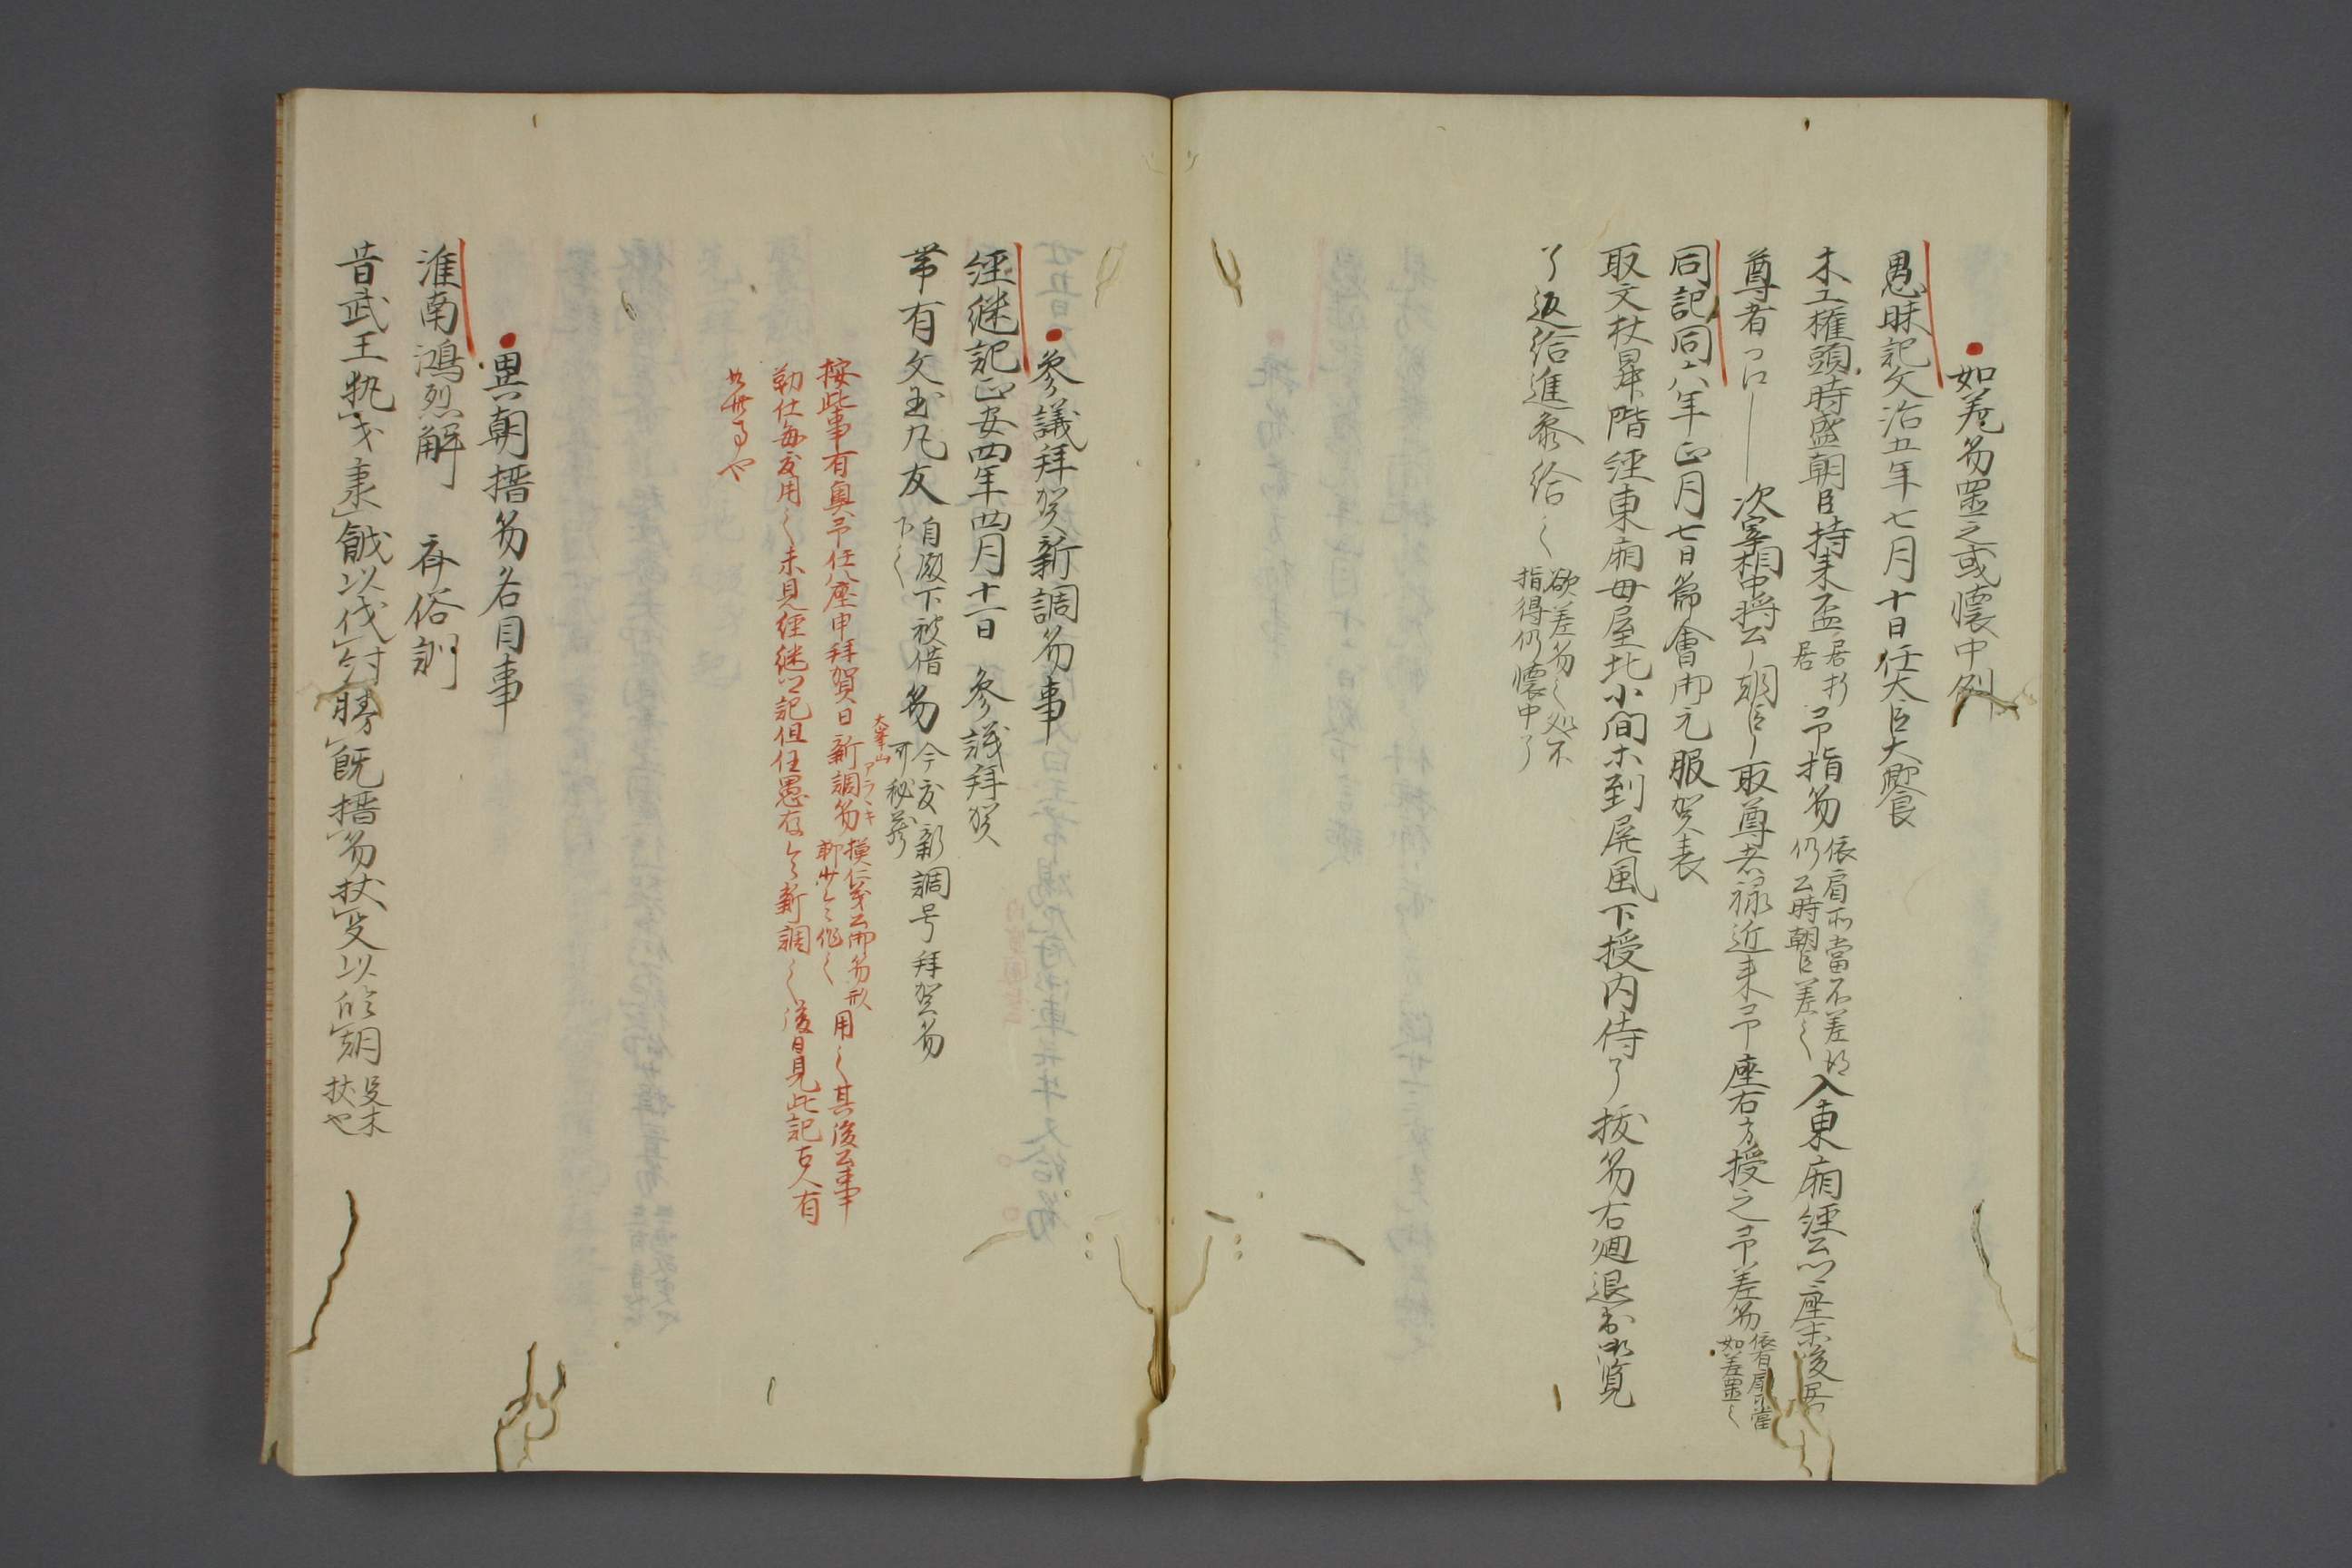 如差笏置之或懐中例
愚昧記文治五年七月十日任大臣大饗
木工権頭時盛朝臣持来盃
居折
居
予指笏
依肩不當不差得
仍公時朝臣差之
入東廂経公卿座末後居
尊者
次宰相中将公朝臣取尊者禄近来予座右方授之予差笏
依有肩不當
如差置之
同記同六年正月七日節會御元服賀表
取文杖昇階経東廂母屋北小間木到屏風下授内侍了抜笏右廻退御覧
了返給進参給之
欲差笏之処不
指得仍懐中了
参議拝賀新調笏事
経継記正安四年四月十一日 参議拝賀
帯有文玉凡友
自殿下被借
下之
笏
今度新調号拝賀笏
可秘蔵
按此事有興予任八座申拝賀日新調笏
大峯山
アラヽキ
摸仁芽公御笏形
用之其後公事
勤仕毎度用之未見経継卿記但任愚存令新調之後日見此記古人有
異朝搢笏名目事
淮南鴻烈解 斉俗訓
昔武王執戈秉鉞以伐紂勝既搢笏杖殳以臨朝
殳木
杖也